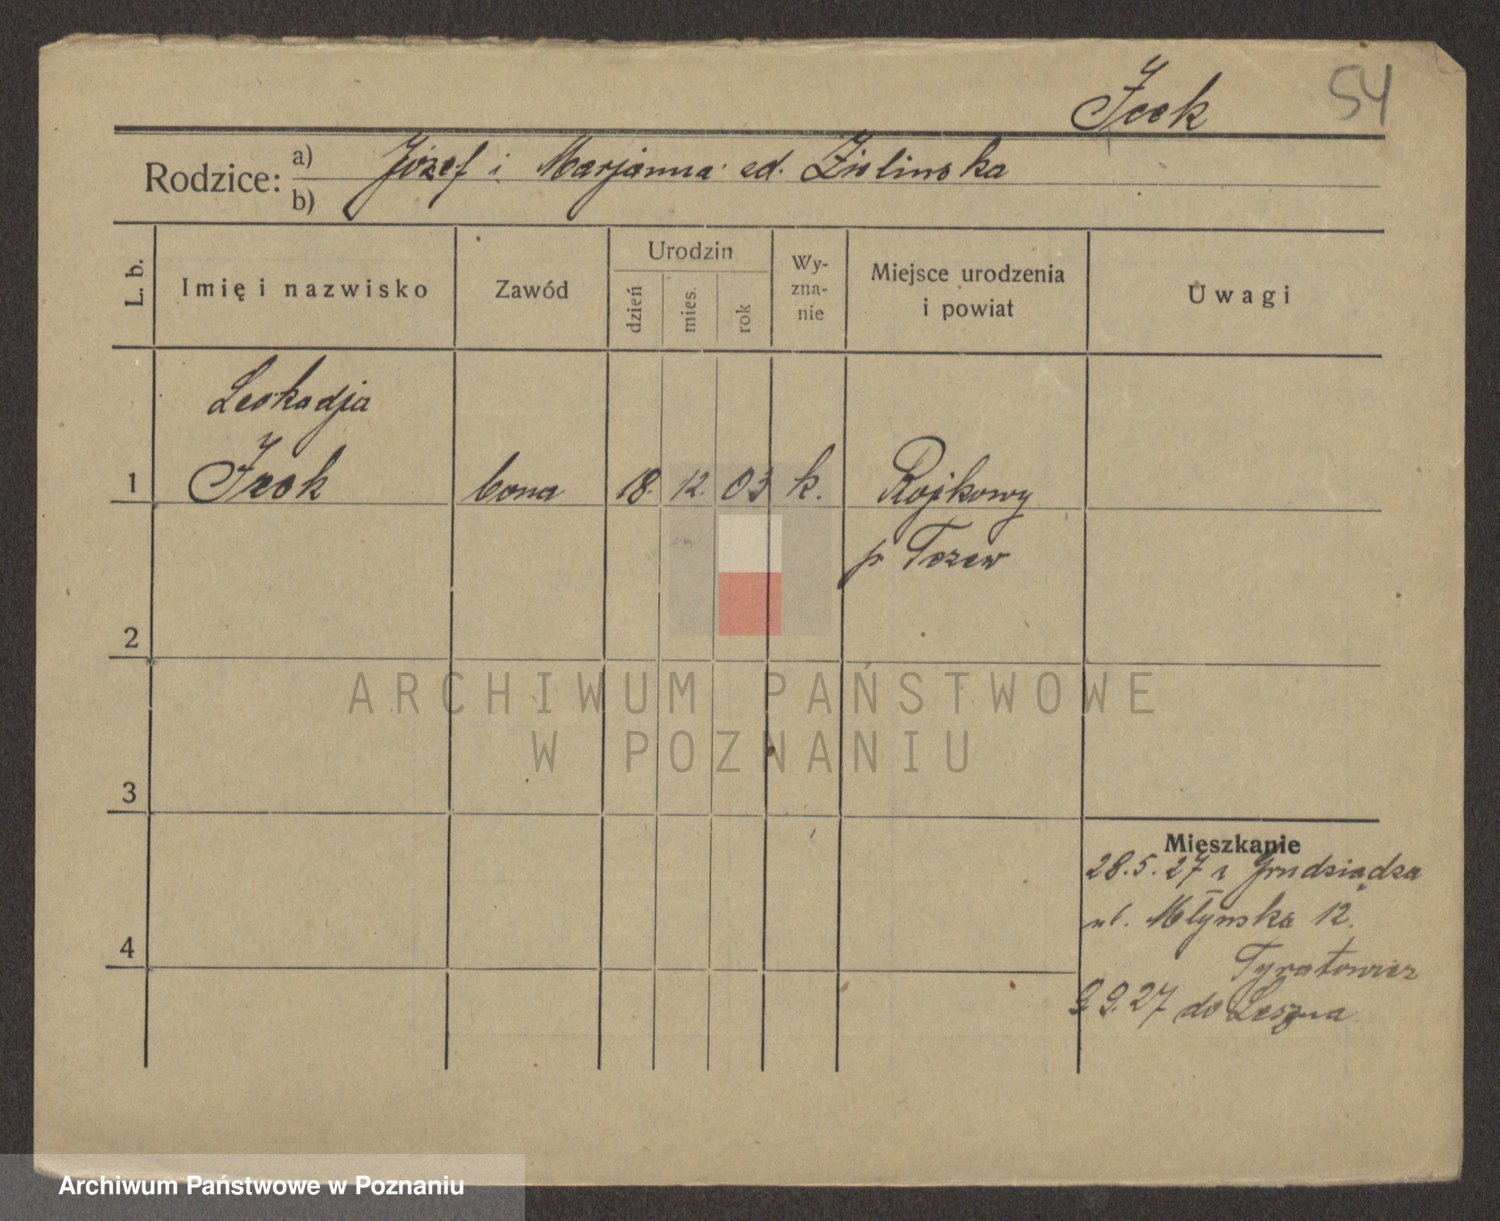 Jeek
54
Rodzice: a) Józef i Marjanna zd. Zielinska
b)
L. b.
Imię i nazwisko
Zawód
Urodzin
dzień
mies.
rok
Wy-
zna-
nie
Miejsce urodzenia
i powiat
Uwagi
Leokadja
1 Jeek bona 18. 12. 03 k. Rojkowy
p. Tczew
2
3
4
Mieszkanie
28.5.27 z Grudziądza
ul. Młyńska 12.
9.9.27 do Leszna
ARCHIWUM PAŃSTWOWE
W POZNANIU
Archiwum Państwowe w Poznaniu